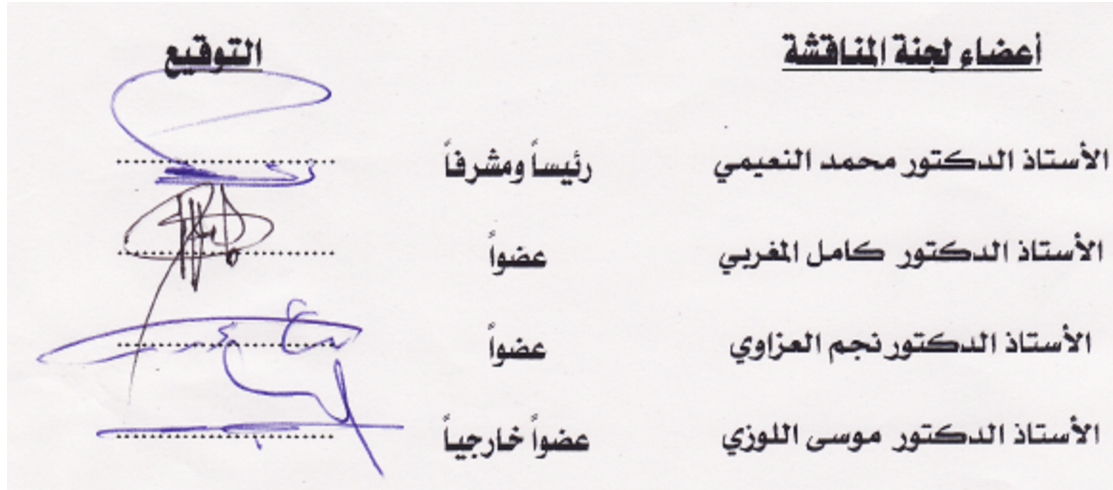 أعضاء لجنة المناقشة التوقيع
الأستاذ الدكتور محمد النعيمي رئيساً ومشرفاً ........................
الأستاذ الدكتور كامل المغربي عضواً ........................
الأستاذ الدكتور نجم العزاوي عضواً ........................
الأستاذ الدكتور موسى اللوزي عضواً خارجياً ........................